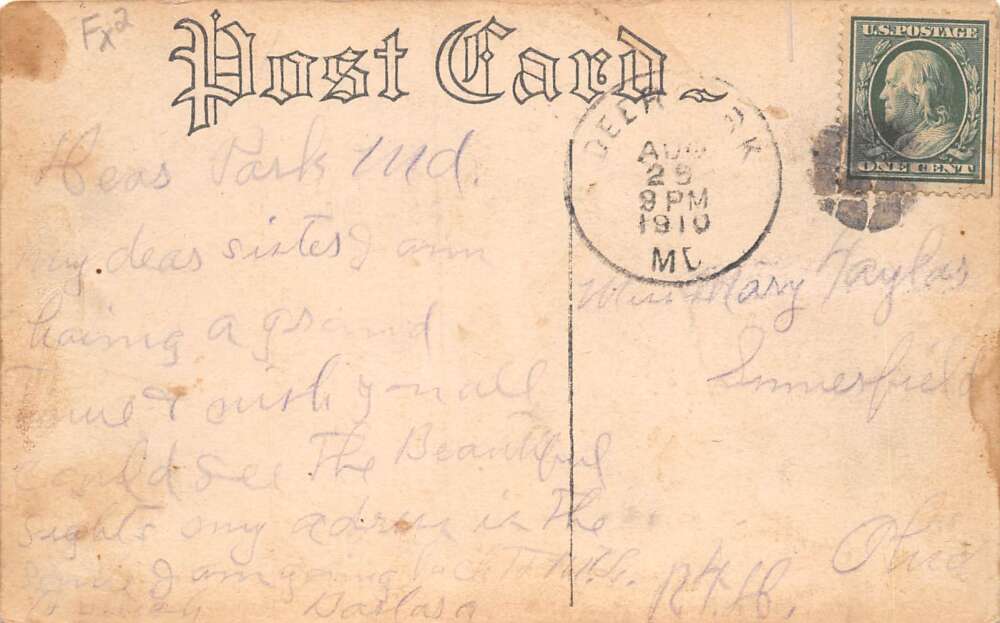 Fx2
Post Card
U.S. POSTAGE
ONE CENT
DEER PARK
AUG
9 PM
1910
MD
Deer Park Md.
My dear sister I am
having a grand
time & wish you all
could see The Beautiful
sights my adress is the
same I am going back to
Miss Mary
Ohio